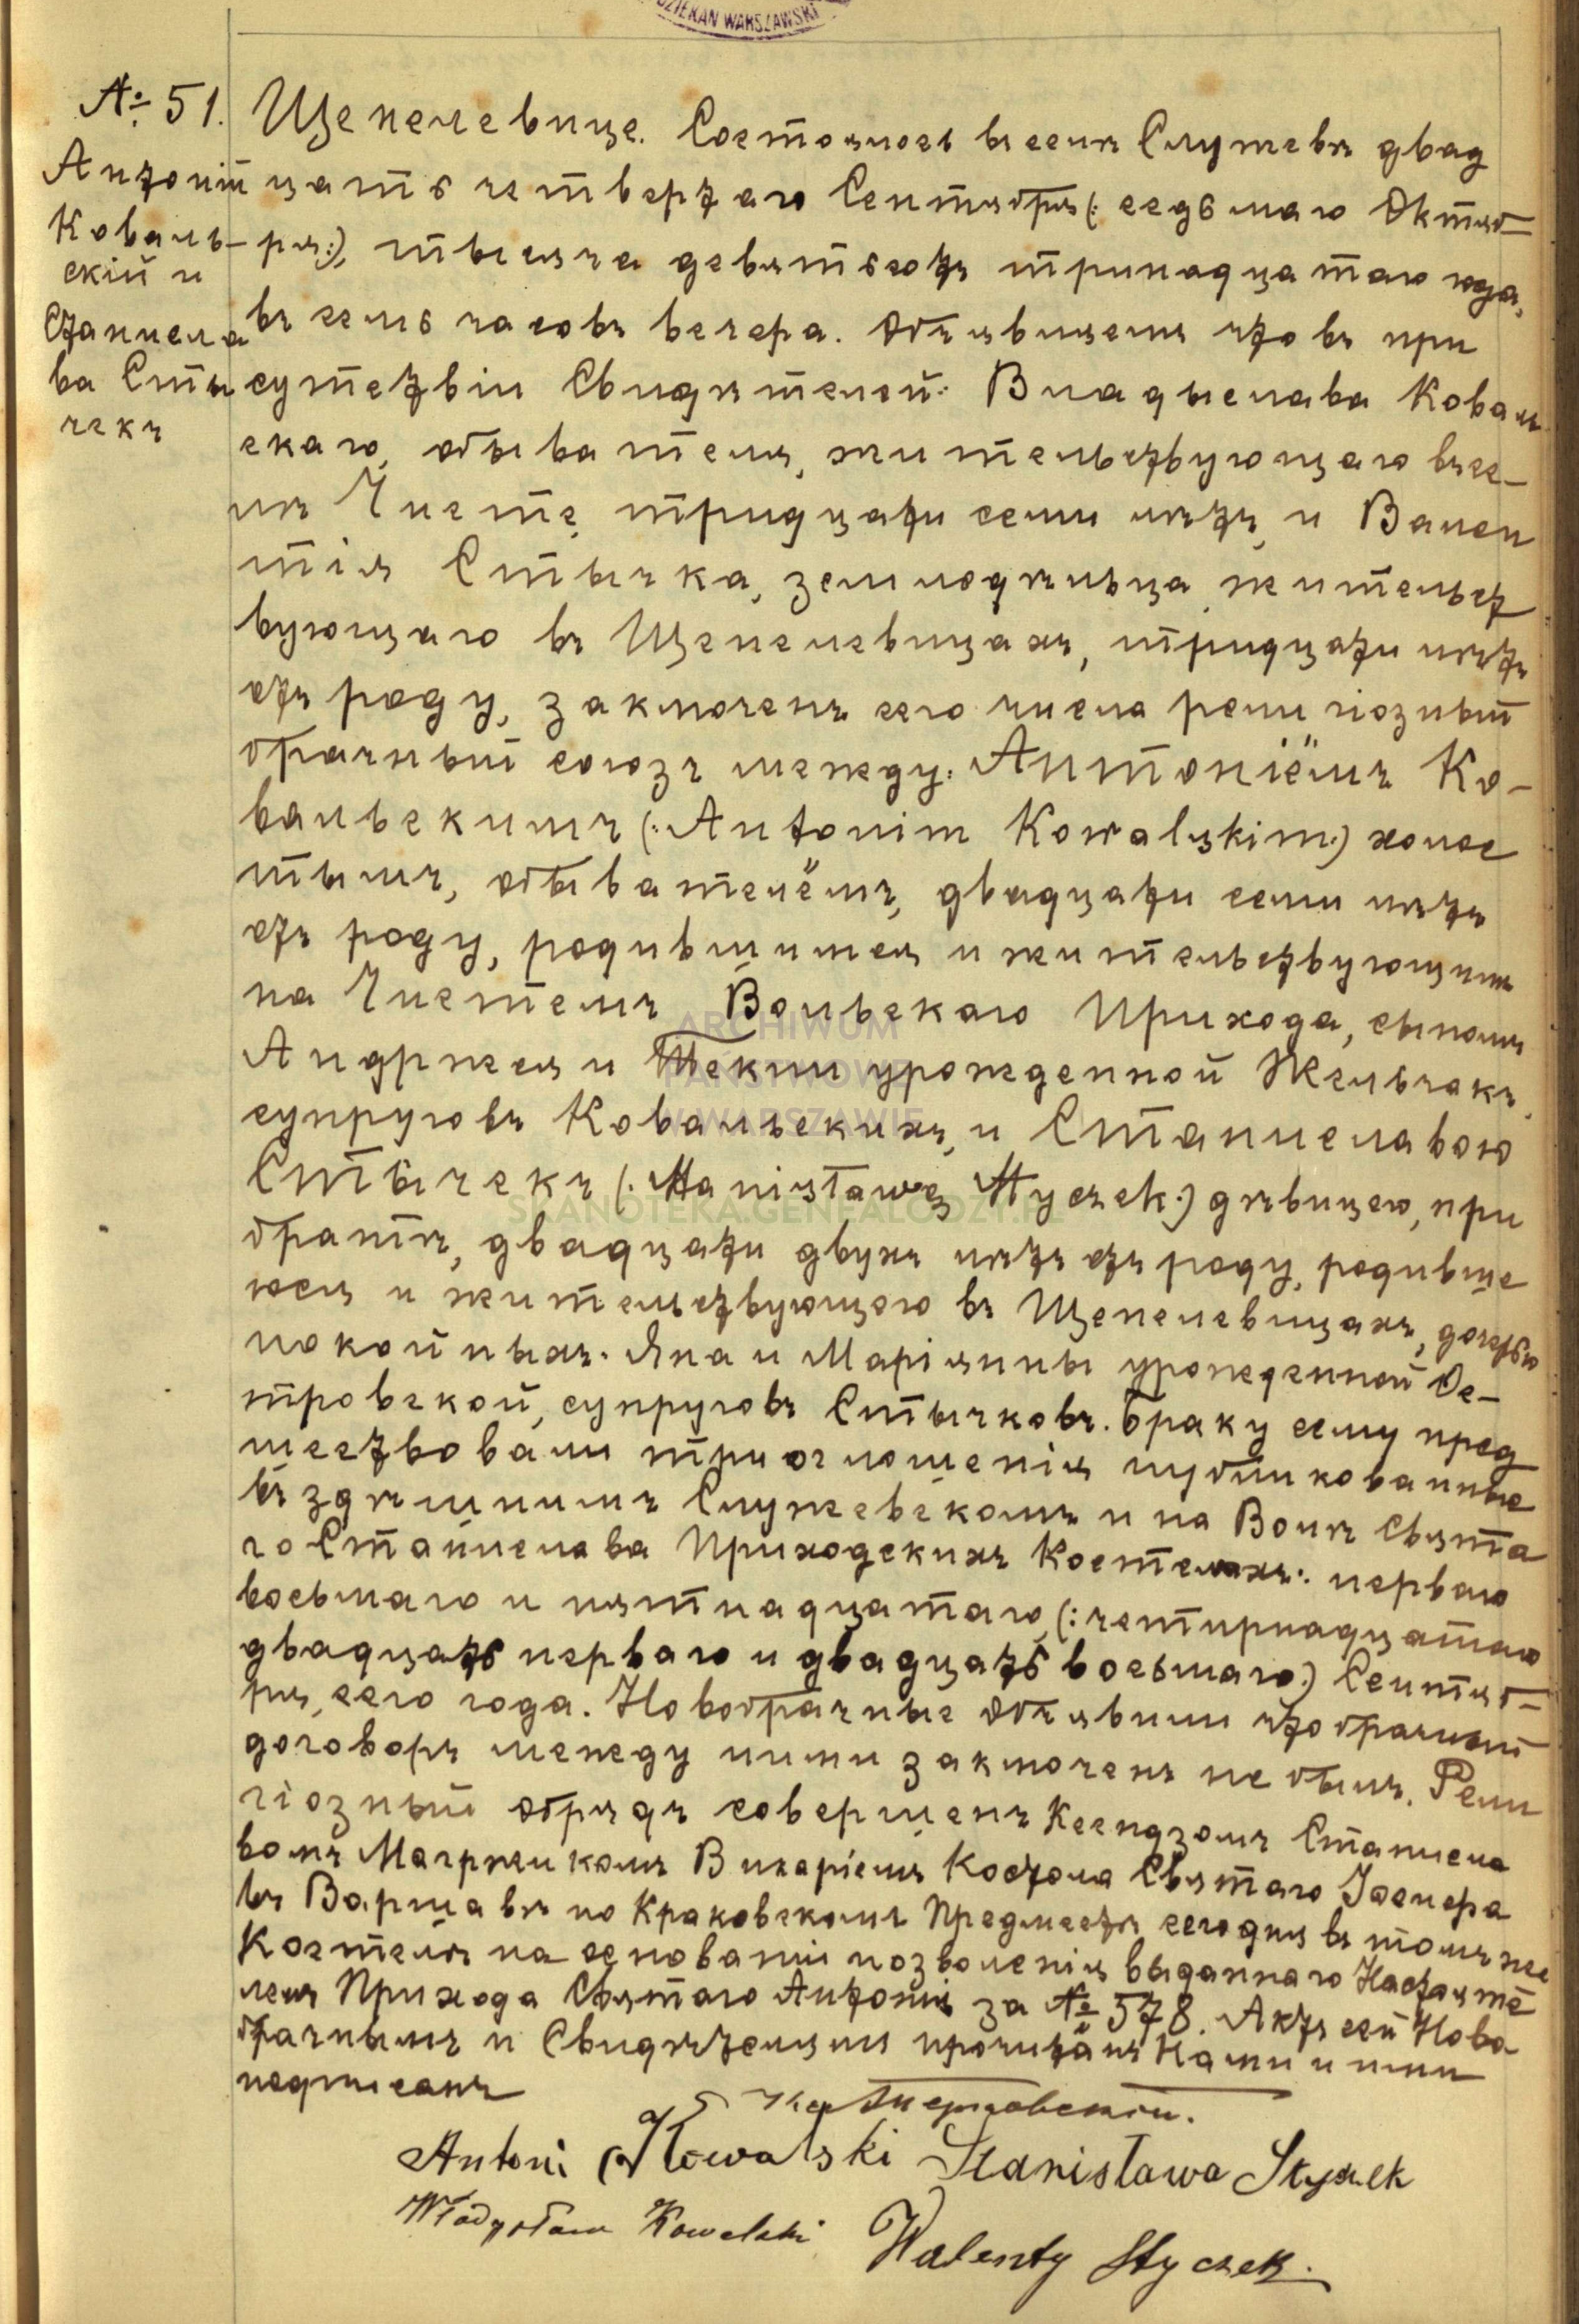 DZIEKAN WARSZAWSKI
№ 51.
Антоній
Коваль-
скій и
Станисла
ва Сты
чекъ
Щепелевице. Состоялось въ селѣ Служевѣ двад
цать четвертаго Сентября (: седьмаго Октяб-
ря:), тысяча девятьсотъ тринадцатаго года,
въ семь часовъ вечера. Объявляемъ что въ при
сутствіи Свидѣтелей: Владыслава Коваль
скаго, обывателя, жительствующаго въ се-
лѣ Чисте, тридцати семи лѣтъ, и Вален
тія Стычка, земледѣльца жительст
вующаго въ Щепелевицахъ, тридцати лѣтъ
отъ роду, заключенъ сего числа религіозный
брачный союзъ между: Антоніёмъ Ко-
вальскимъ (: Antonim Kowalskim:) холос
тымъ, обывателёмъ, двадцати семи лѣтъ
отъ роду, родившимся и жительствующимъ
на Чистемъ Вольскаго Прихода, сыномъ
Андржея и Текли урожденной Жельчакъ
супруговъ Ковальскихъ, и Станиславою
Стычекъ (: Stanisławą Styczek:) дѣвицею, при
братѣ, двадцати двухъ лѣтъ отъ роду, родивше
юся и жительствующою въ Щепелевицахъ, дочерью
покойныхъ: Яна и Маріянны урожденной Ос-
тровской, супруговъ Стычковъ. Браку сему пред
шествовали три оглошенія публикованные
въ здѣшнимъ Служевскомъ и на Волѣ Свята
го Станислава Приходскихъ Костелахъ: перваго
восьмаго и пятнадцатаго, (: четырнадцатаго
двадцать перваго и двадцать восьмаго:) Сентяб-
ря, сего года. Новобрачные объявили что брачный
договоръ между ними заключенъ не былъ. Рели
гіозный обрядъ совершенъ Ксендзомъ Станисла
вомъ Магржикомъ Викаріемъ Костола Святаго Іосифа
въ Варшавѣ по Краковскомъ Предместѣ сегодня въ томъ же
Костелѣ на основаніи позволенія выданнаго Настояте
лемъ Прихода Святаго Антонія за № 578. Актъ сей Ново
брачнымъ и Свидѣтелямъ прочитанъ Нами и ими
подписанъ
Antoni Kowalski Stanisława Styczek
Władysław Kowalski Walenty Styczek.
ARCHIWUM
PAŃSTWOWE
W WARSZAWIE
SKANOTEKA.GENEALODZY.PL